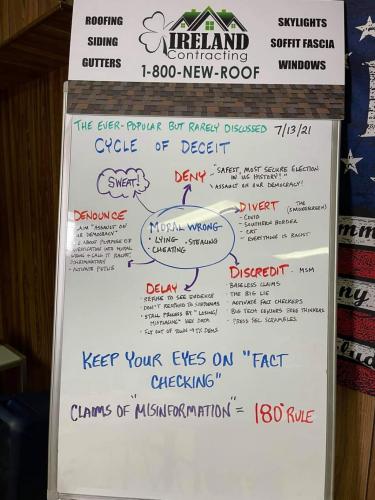 ROOFING
SIDING
GUTTERS
IRELAND
Contracting
1-800-NEW-ROOF
SKYLIGHTS
SOFFIT FASCIA
WINDOWS
THE EVER-POPULAR BUT RARELY DISCUSSED 7/13/21
CYCLE OF DECEIT
SWEAT!
DENY - "SAFEST, MOST SECURE ELECTION
IN US HISTORY!"
"ASSAULT ON OUR DEMOCRACY!"
DIVERT - THE
(SMOKESCREEN)
• COVID
• SOUTHERN BORDER
• CRT
• EVERYTHING IS RACIST
MORAL WRONG
• LYING • STEALING
• CHEATING
DISCREDIT - MSM
• BASELESS CLAIMS
• THE BIG LIE
• ACTIVATE FACT CHECKERS
• BIG TECH CENSORS FREE THINKERS
• PRESS SEC. SCRAMBLES
DELAY
• REFUSE TO SEE EVIDENCE
• DON'T RESPOND TO SUBPOENAS
• STALL PROCESS BY "LOSING/
MISPLACING" KEY DATA
• FLY OUT OF TOWN - TX DEMS.
DENOUNCE
"ASSAULT ON
OUR DEMOCRACY"
ABOUT PURPOSE OF
INTO MORAL
WRONG & CALL IT RACIST,
DISCRIMINATORY
• ACTIVATE POTUS
KEEP YOUR EYES ON "FACT
CHECKING"
CLAIMS OF "MISINFORMATION" = 180° RULE